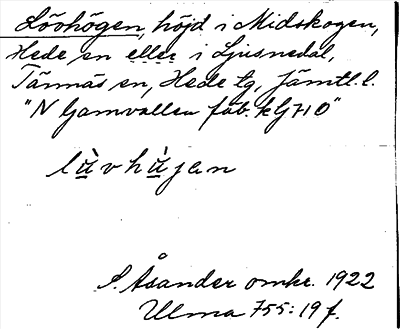 Lövhögen, höjd i Midskogen,
Hede sn eller i Ljusnedal,
Tännäs sn, Hede tg, Jämtl. l.
"N Gamvallen fäb. kG710"
lùvhùjan
S. Åsander omkr. 1922
Ulma 755:19 f.